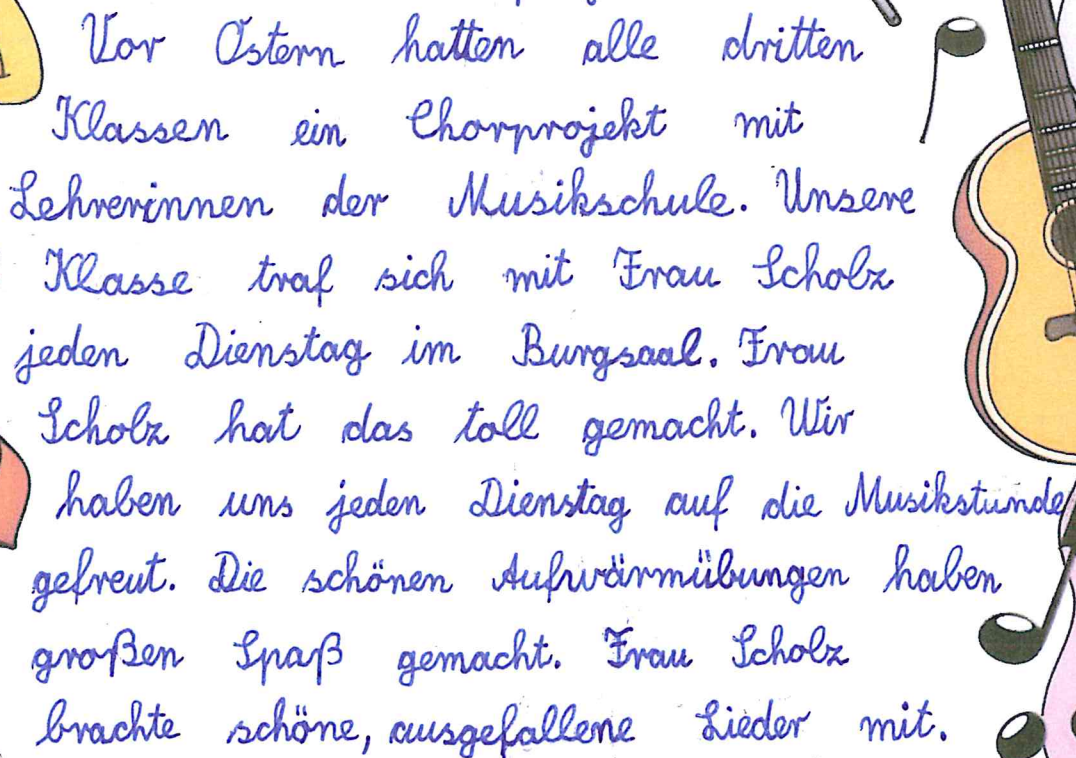 Vor Ostern hatten alle dritten
Klassen ein Chorprojekt mit
Lehrerinnen der Musikschule. Unsere
Klasse traf sich mit Frau Scholz
jeden Dienstag im Burgsaal. Frau
Scholz hat das toll gemacht. Wir
haben uns jeden Dienstag auf die Musikstunde
gefreut. Die schönen Aufwärmübungen haben
großen Spaß gemacht. Frau Scholz
brachte schöne, ausgefallene Lieder mit.